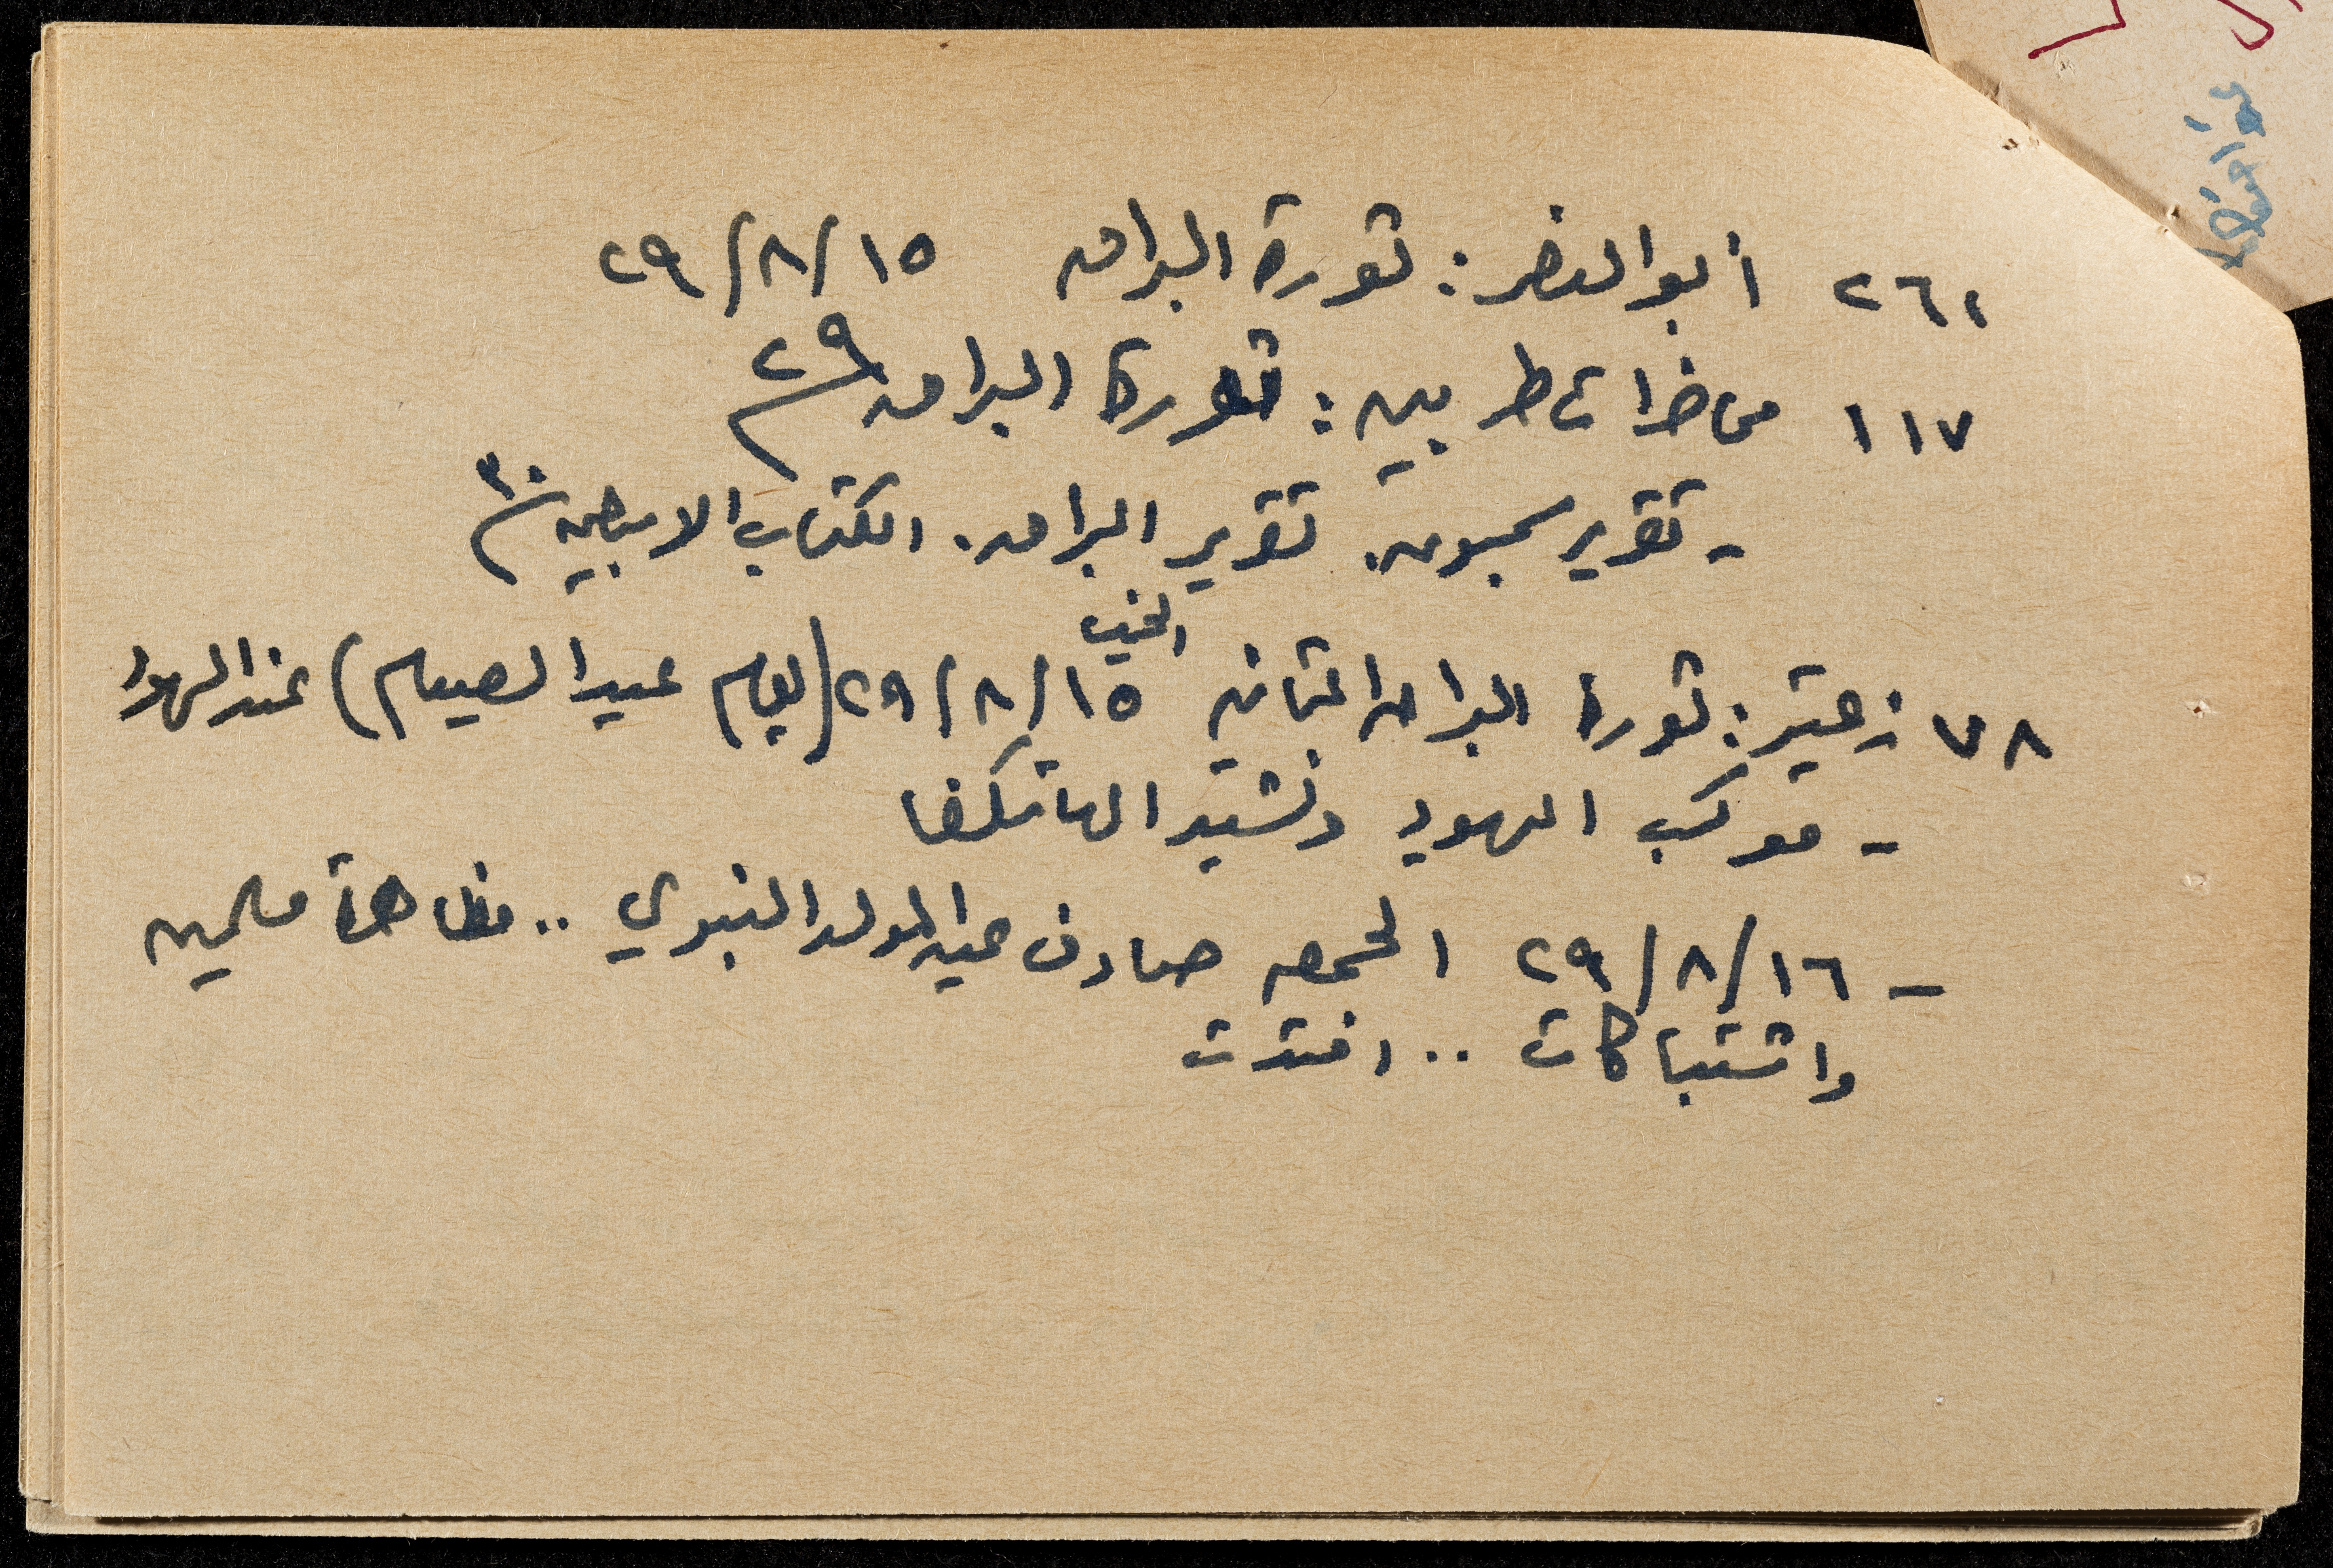 ٢٦١ أبو النصر: ثورة البراق ١٥/٨/٢٩
١١٧ محاضرات طربين: ثورة البراق ٢٩
- تقرير سمبسون. تقرير البراق. الكتاب الابيض ٣٠
الخميس
٧٨ زعيتر: ثورة البراق الثانية ١٥/٨/٢٩ (يوم عيد الصيام) عند اليهود
- موكب اليهود ونشيد الهاتكفا
- ١٦/٨/٢٩ الجمعه صادف عيد المولد النبوي .. مظاهرة مسلمين
واشتباكات .. امتدت